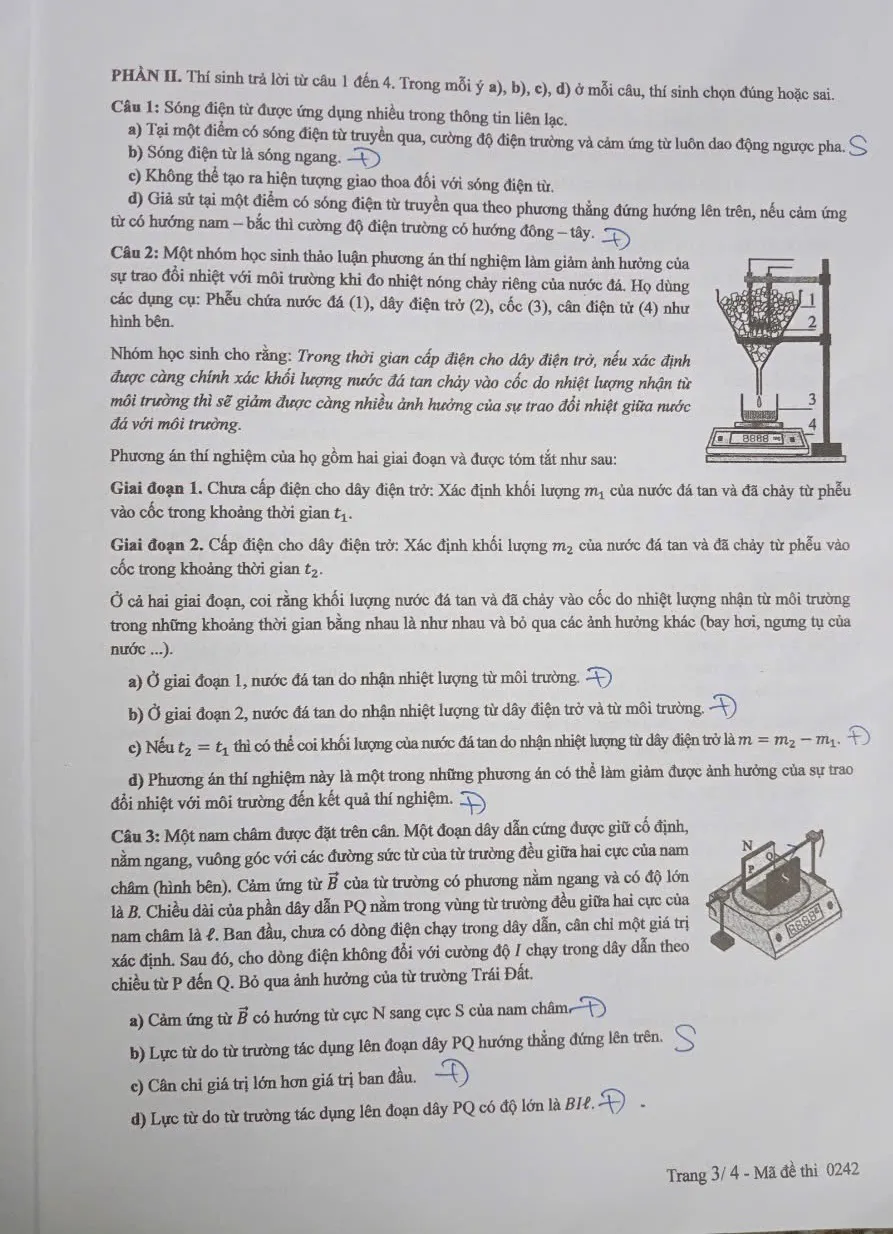 PHẦN II. Thí sinh trả lời từ câu 1 đến 4. Trong mỗi ý a), b), c), d) ở mỗi câu, thí sinh chọn đúng hoặc sai.
Câu 1: Sóng điện từ được ứng dụng nhiều trong thông tin liên lạc.
a) Tại một điểm có sóng điện từ truyền qua, cường độ điện trường và cảm ứng từ luôn dao động ngược pha. S
b) Sóng điện từ là sóng ngang. Đ
c) Không thể tạo ra hiện tượng giao thoa đối với sóng điện từ.
d) Giả sử tại một điểm có sóng điện từ truyền qua theo phương thẳng đứng hướng lên trên, nếu cảm ứng
từ có hướng nam – bắc thì cường độ điện trường có hướng đông – tây. Đ
Câu 2: Một nhóm học sinh thảo luận phương án thí nghiệm làm giảm ảnh hưởng của
sự trao đổi nhiệt với môi trường khi đo nhiệt nóng chảy riêng của nước đá. Họ dùng
các dụng cụ: Phễu chứa nước đá (1), dây điện trở (2), cốc (3), cân điện tử (4) như
hình bên.
1
2
3
4
8888
Nhóm học sinh cho rằng: Trong thời gian cấp điện cho dây điện trở, nếu xác định
được càng chính xác khối lượng nước đá tan chảy vào cốc do nhiệt lượng nhận từ
môi trường thì sẽ giảm được càng nhiều ảnh hưởng của sự trao đổi nhiệt giữa nước
đá với môi trường.
Phương án thí nghiệm của họ gồm hai giai đoạn và được tóm tắt như sau:
Giai đoạn 1. Chưa cấp điện cho dây điện trở: Xác định khối lượng m₁ của nước đá tan và đã chảy từ phễu
vào cốc trong khoảng thời gian t₁.
Giai đoạn 2. Cấp điện cho dây điện trở: Xác định khối lượng m₂ của nước đá tan và đã chảy từ phễu vào
cốc trong khoảng thời gian t₂.
Ở cả hai giai đoạn, coi rằng khối lượng nước đá tan và đã chảy vào cốc do nhiệt lượng nhận từ môi trường
trong những khoảng thời gian bằng nhau là như nhau và bỏ qua các ảnh hưởng khác (bay hơi, ngưng tụ của
nước ...).
a) Ở giai đoạn 1, nước đá tan do nhận nhiệt lượng từ môi trường. Đ
b) Ở giai đoạn 2, nước đá tan do nhận nhiệt lượng từ dây điện trở và từ môi trường. Đ
c) Nếu t₂ = t₁ thì có thể coi khối lượng của nước đá tan do nhận nhiệt lượng từ dây điện trở là m = m₂ − m₁. Đ
d) Phương án thí nghiệm này là một trong những phương án có thể làm giảm được ảnh hưởng của sự trao
đổi nhiệt với môi trường đến kết quả thí nghiệm. Đ
Câu 3: Một nam châm được đặt trên cân. Một đoạn dây dẫn cứng được giữ cố định,
nằm ngang, vuông góc với các đường sức từ của từ trường đều giữa hai cực của nam
châm (hình bên). Cảm ứng từ B⃗ của từ trường có phương nằm ngang và có độ lớn
là B. Chiều dài của phần dây dẫn PQ nằm trong vùng từ trường đều giữa hai cực của
nam châm là ℓ. Ban đầu, chưa có dòng điện chạy trong dây dẫn, cân chỉ một giá trị
xác định. Sau đó, cho dòng điện không đổi với cường độ I chạy trong dây dẫn theo
chiều từ P đến Q. Bỏ qua ảnh hưởng của từ trường Trái Đất.
N
Q
P
S
8888
a) Cảm ứng từ B⃗ có hướng từ cực N sang cực S của nam châm. Đ
b) Lực từ do từ trường tác dụng lên đoạn dây PQ hướng thẳng đứng lên trên. S
c) Cân chỉ giá trị lớn hơn giá trị ban đầu. Đ
d) Lực từ do từ trường tác dụng lên đoạn dây PQ có độ lớn là BIℓ. Đ
Trang 3/ 4 - Mã đề thi 0242